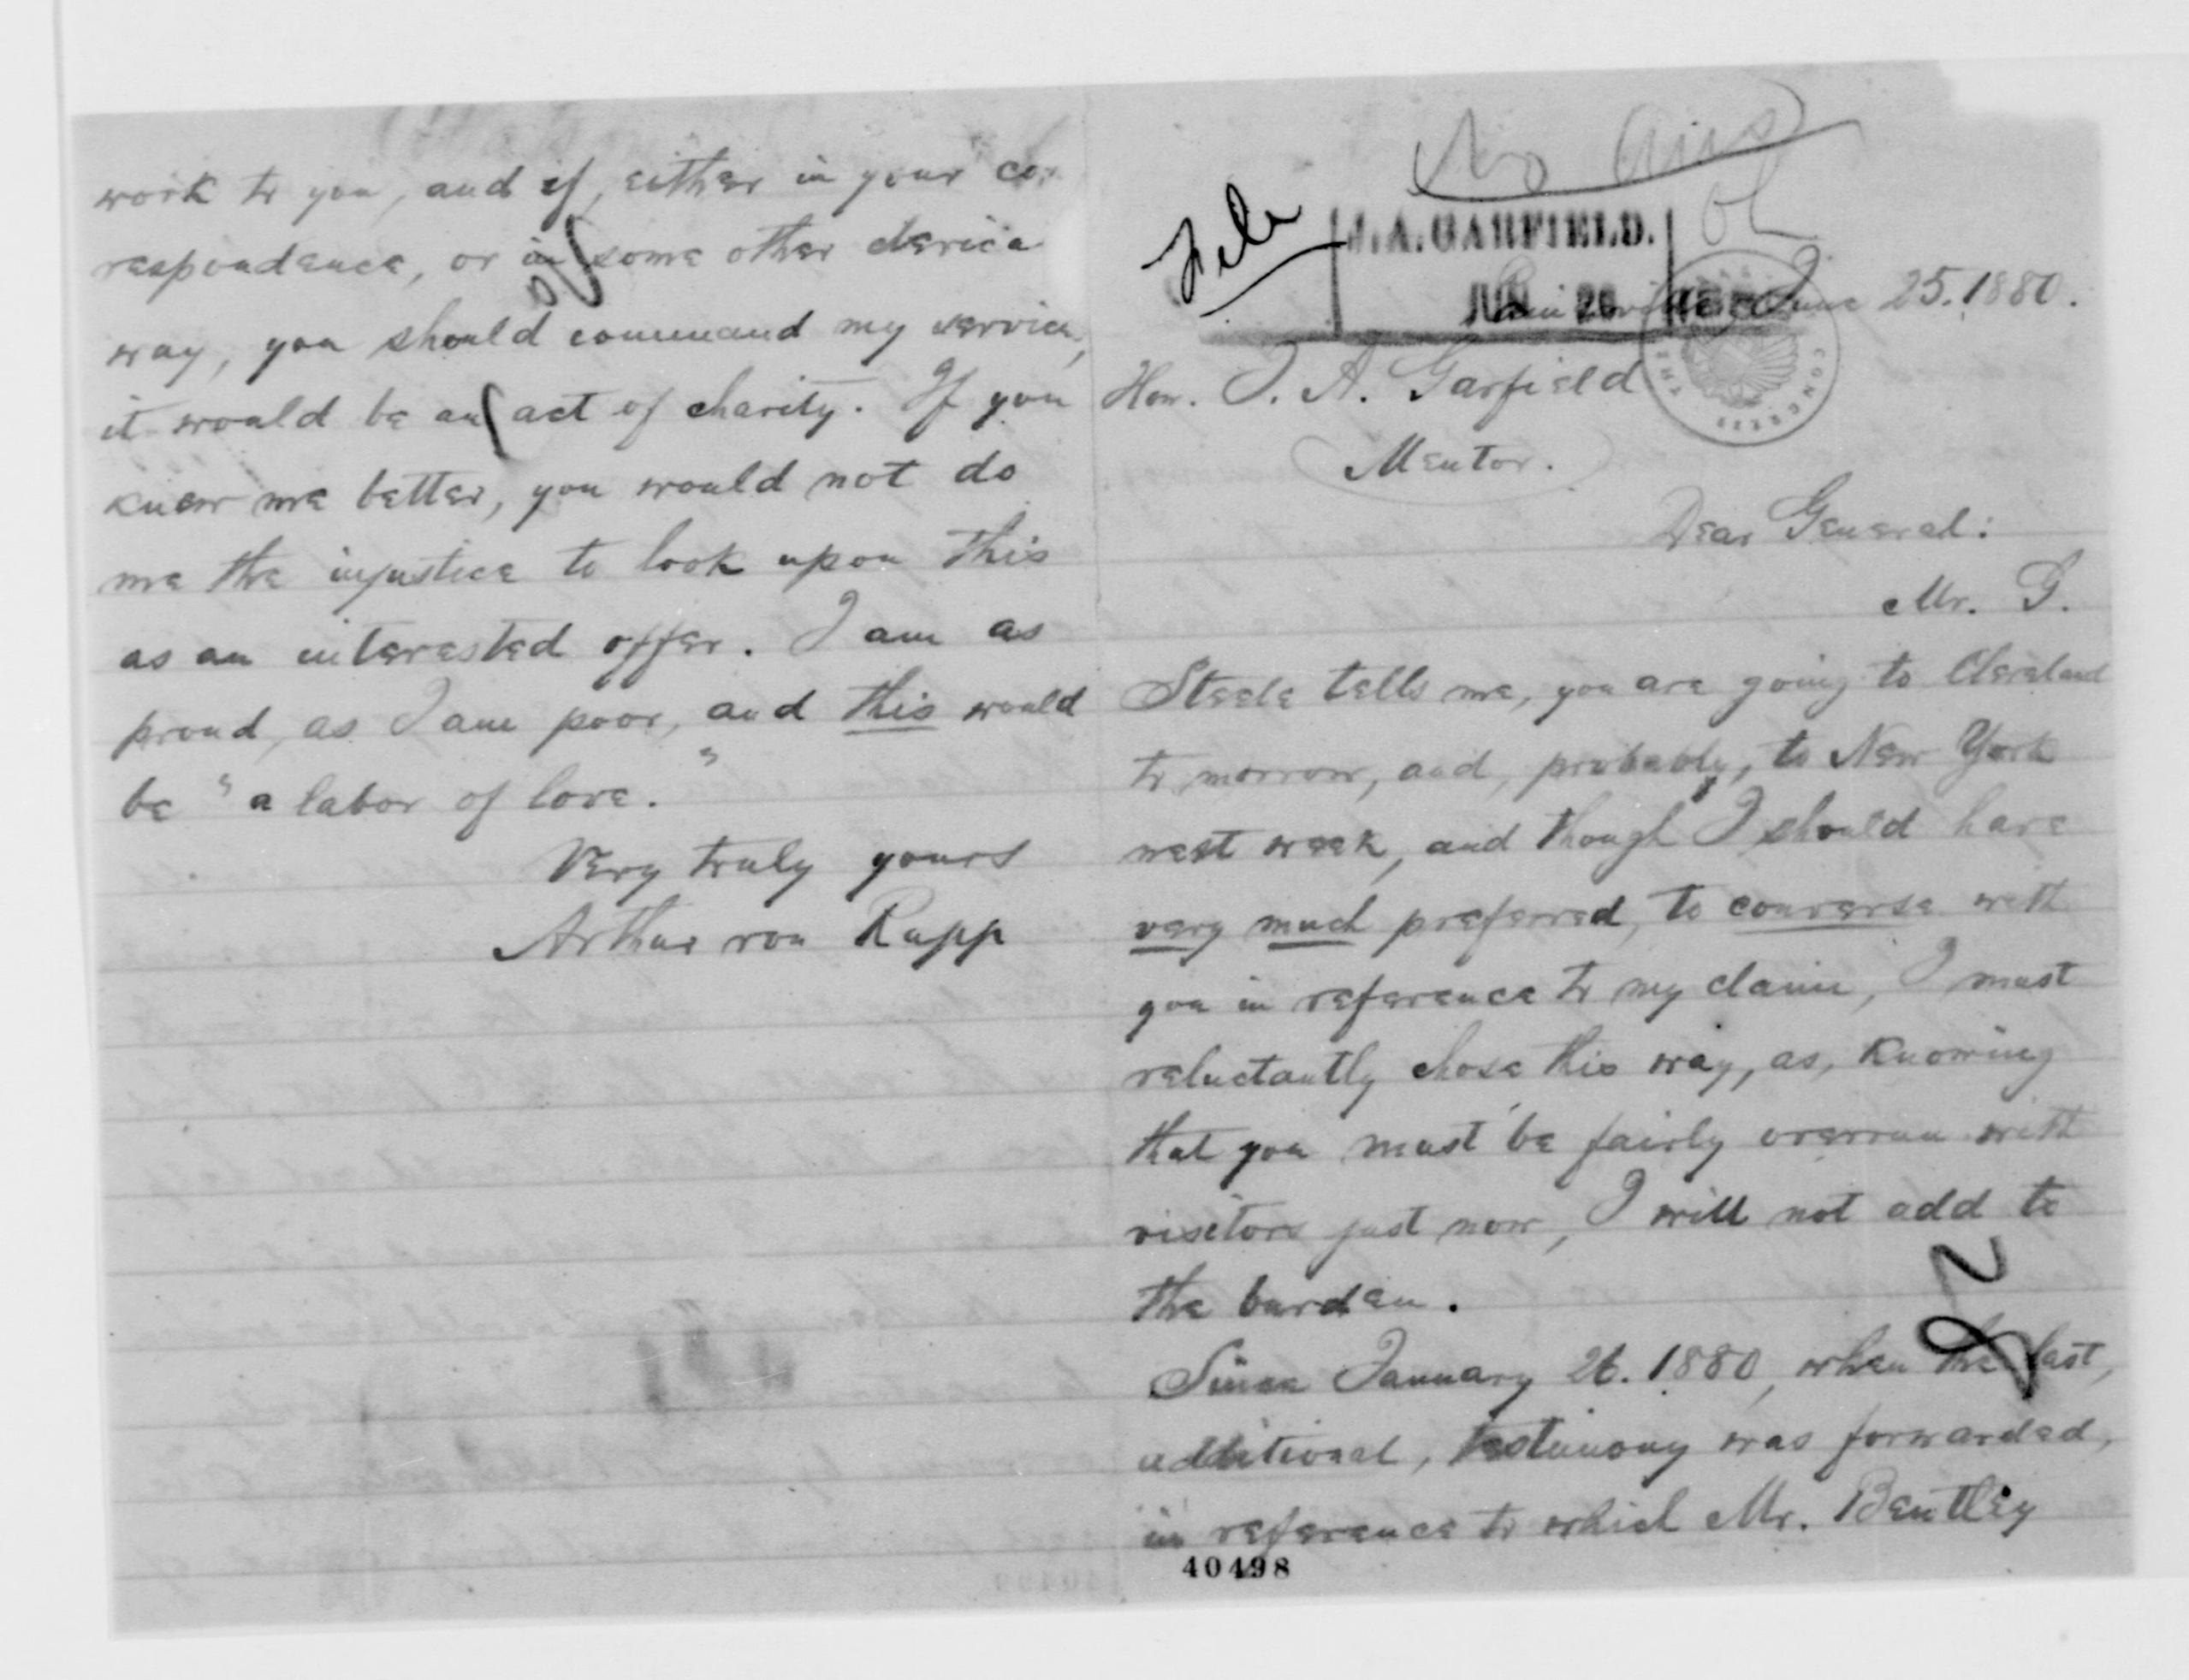 work to you, and if, either in your cor
respondence, or in some other clerica
way, you should command my service,
it would be an act of charity. If you
knew me better, you would not do
me the injustice to look upon this
as an interested offer. I am as
proud, as I am poor, and this would
be "a labor of love."
Very truly yours
Arthur von Rupp
No Ans
File
J. A. GARFIELD.
JUN 26
June 25. 1880.
Hon. J. A. Garfield
Mentor.
Dear General:
Mr. G.
Steele tells me, you are going to Cleveland
to morrow, and, probably, to New York
next week, and though I should have
very much preferred, to converse with
you in reference to my claim, I must
reluctantly chose this way, as, knowing
that you must be fairly overrun with
visitors just now, I will not add to
the burden.
Since January 26. 1880, when the last,
additional, testimony was forwarded,
in reference to which Mr. Bentley
40498